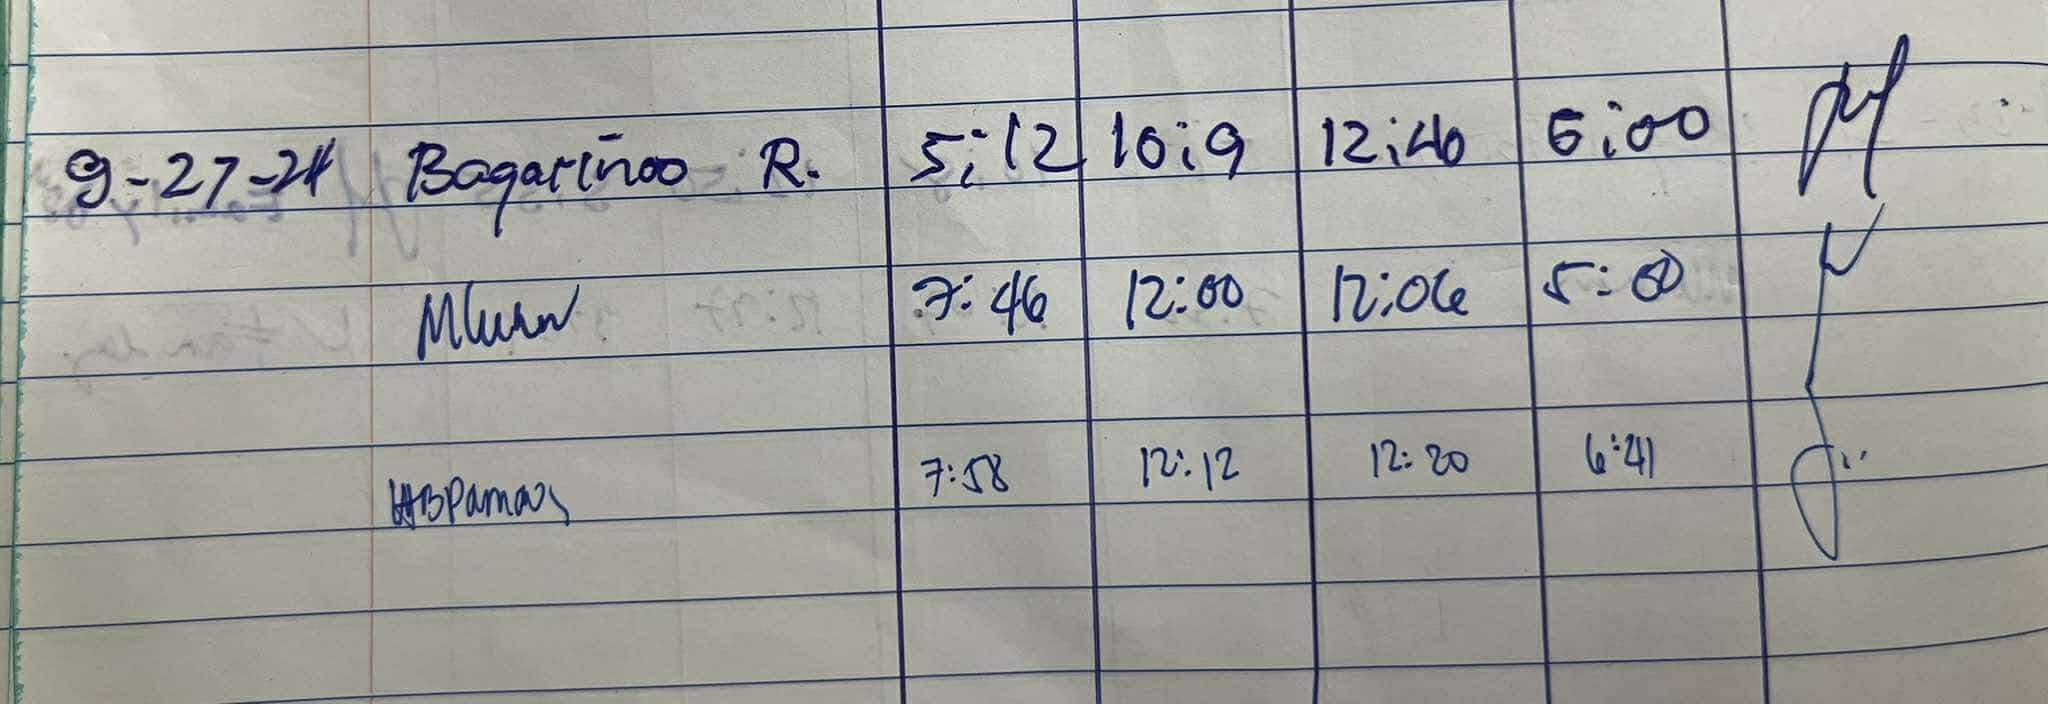 9-27-24 Bagariñoo R. 5:12 10:9 12:40 5:00
7:46 12:00 12:06 5:00
7:58 12:12 12:20 6:41